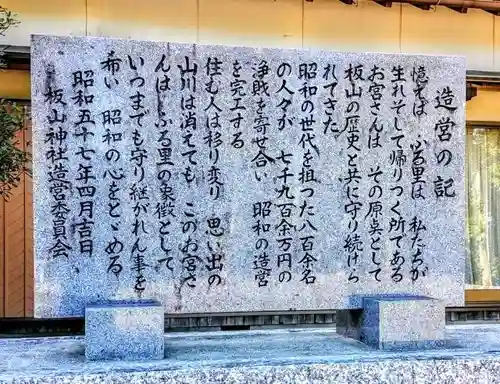 造営の記
憶えば ふる里は 私たちが
生れそして帰りつく所である
お宮さんは その原点として
板山の歴史と共に守り続けら
れてきた
昭和の世代を担った八百余名
の人々が 七千九百余万円の
浄財を寄せ合い 昭和の造営
を完工する
住む人は移り変り 思い出の
山川は消えても このお宮さ
んは ふる里の象徴として
いつまでも守り継がれん事を
希い 昭和の心をとゞめる
昭和五十七年四月吉日
板山神社造営委員会